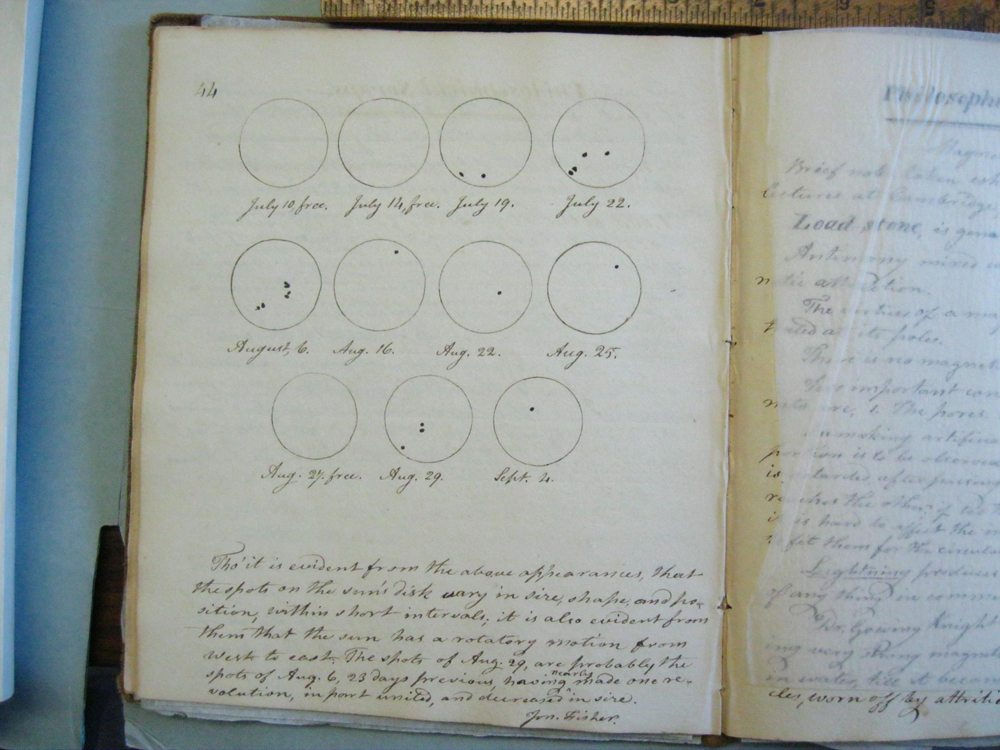 44
July 10, free. July 14, free. July 19. July 22.
August, 6. Aug. 16. Aug. 22. Aug. 25.
Aug. 27. free. Aug. 29. Sept. 4.
Tho' it is evident from the above appearances, that
the spots on the sun's disk vary in size, shape, and po-
sition, within short intervals; it is also evident from
them that the sun has a rotatory motion from
west to east. The spots of Aug. 29, are probably the
spots of Aug. 6, 23 days previous, having nearly made one re-
volution, in part united, and decreased in size.
Jon. Fisher.
Philosoph
Brief
lectures at Cambridge
Load stone, is gene
Antimony mixed
attraction.
The virtues of a ma
its poles.
There is no magnet
important con
are, 1. The pores
making artific
is to be observed
is retarded, after
the other
is hard to affect the
fit them for the circula
Lightning produces
of any thing in common
Dr. Gowing Knight
ing very strong magnet
in water, till it became
cles, worn off by attriti